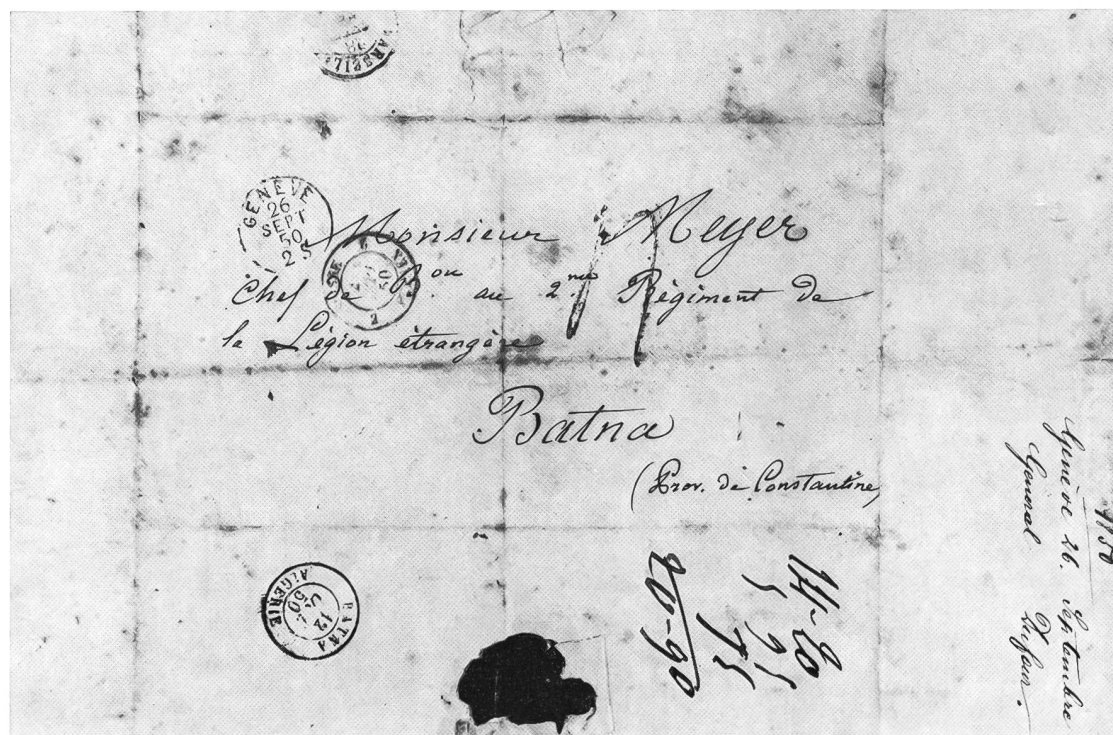 GENÈVE
26
SEPT
50
2 S
Monsieur Meyer
Chef de Bon au 2me Régiment de
la Légion étrangère
Batna
(Prov. de Constantine)
BATNA
12
50
ALGERIE
14-20
5 95
75
20-90
1850
Genève 26. Septembre
General Dufour.